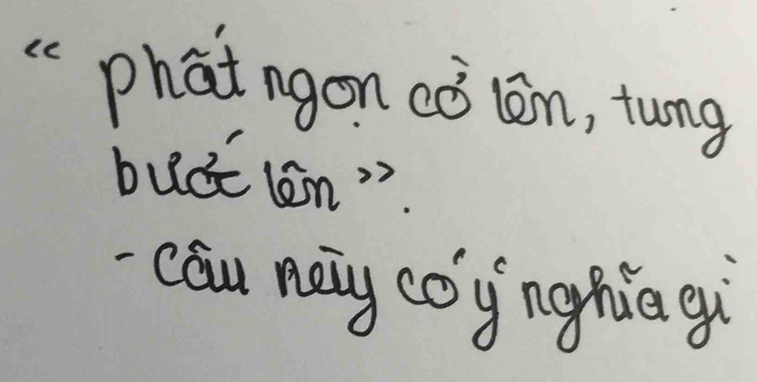 “ phất ngọn cờ lên, tung
bước lên ”.
- câu này có ý nghĩa gì